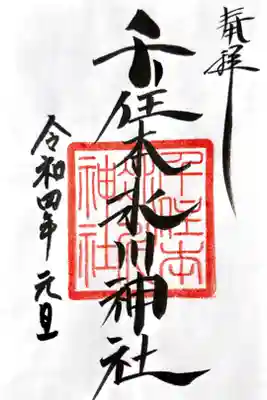 奉拝
千住本氷川神社
千住本
氷川
神社
令和四年 元旦